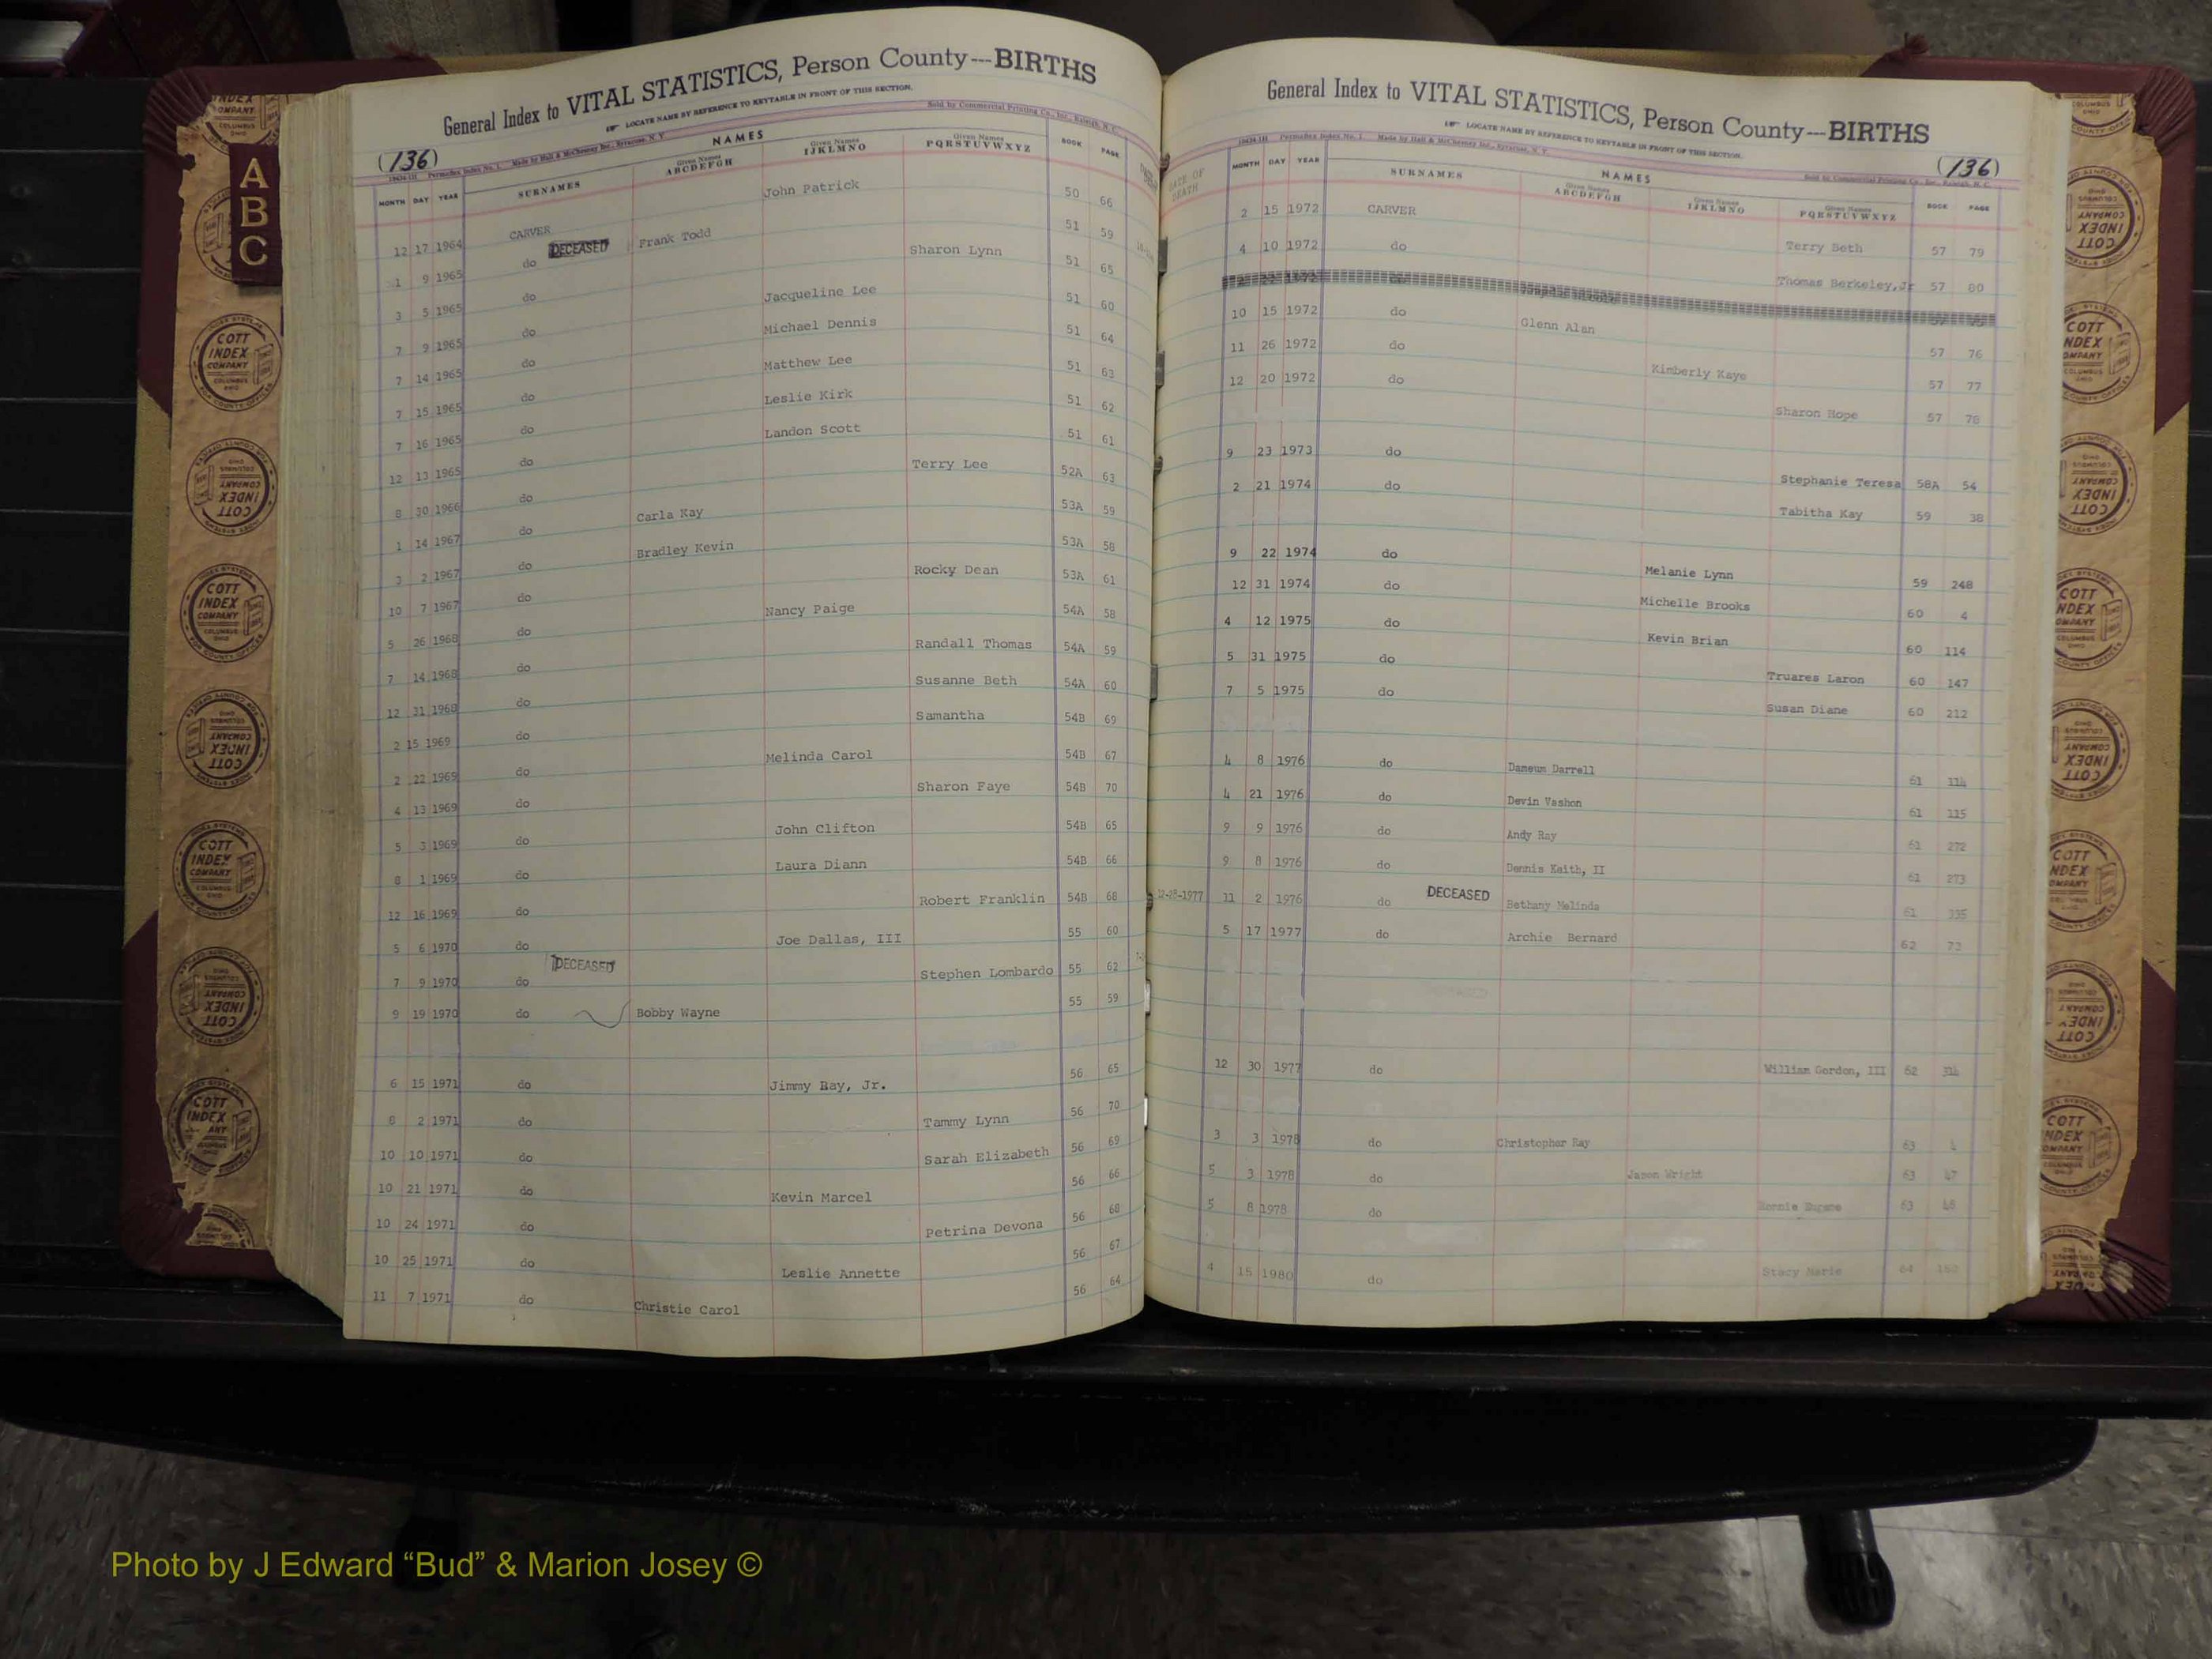 General Index to VITAL STATISTICS, Person County---BIRTHS
LOCATE NAME BY REFERENCE TO KEYTABLE IN FRONT OF THIS SECTION.
(136) Made by Hall & McChesney Inc., Syracuse, N. Y. Sold by Commercial Printing Co., Inc., Raleigh, N. C.
NAMES
MONTH DAY YEAR SURNAMES Given Names ABCDEFGH Given Names IJKLMNO Given Names PQRSTUVWXYZ BOOK PAGE
12 17 1964 CARVER John Patrick 50 66
1 9 1965 do DECEASED Frank Todd 51 59
3 5 1965 do Sharon Lynn 51 65
7 9 1965 do Jacqueline Lee 51 60
7 14 1965 do Michael Dennis 51 64
7 15 1965 do Matthew Lee 51 63
7 16 1965 do Leslie Kirk 51 62
12 13 1965 do Landon Scott 51 61
8 30 1966 do Terry Lee 52A 63
1 14 1967 do Carla Kay 53A 59
3 2 1967 do Bradley Kevin 53A 58
10 7 1967 do Rocky Dean 53A 61
5 26 1968 do Nancy Paige 54A 58
7 14 1968 do Randall Thomas 54A 59
12 31 1968 do Susanne Beth 54A 60
2 15 1969 do Samantha 54B 69
2 22 1969 do Melinda Carol 54B 67
4 13 1969 do Sharon Faye 54B 70
5 3 1969 do John Clifton 54B 65
8 1 1969 do Laura Diann 54B 66
12 16 1969 do Robert Franklin 54B 68
5 6 1970 do Joe Dallas, III 55 60
7 9 1970 do DECEASED Stephen Lombardo 55 62
9 19 1970 do Bobby Wayne 55 59
6 15 1971 do Jimmy Ray, Jr. 56 65
8 2 1971 do Tammy Lynn 56 70
10 10 1971 do Sarah Elizabeth 56 69
10 21 1971 do Kevin Marcel 56 66
10 24 1971 do Petrina Devona 56 68
10 25 1971 do Leslie Annette 56 67
11 7 1971 do Christie Carol 56 64
General Index to VITAL STATISTICS, Person County---BIRTHS
LOCATE NAME BY REFERENCE TO KEYTABLE IN FRONT OF THIS SECTION.
Made by Hall & McChesney Inc., Syracuse, N. Y. Sold by Commercial Printing Co., Inc., Raleigh, N. C. (136)
NAMES
DATE OF DEATH MONTH DAY YEAR SURNAMES Given Names ABCDEFGH Given Names IJKLMNO Given Names PQRSTUVWXYZ BOOK PAGE
2 15 1972 CARVER Terry Seth 57 79
4 10 1972 do Thomas Berkeley, Jr 57 80
10 15 1972 do Glenn Alan 57 76
11 26 1972 do Kimberly Kaye 57 77
12 20 1972 do Sharon Hope 57 78
9 23 1973 do Stephanie Teresa 58A 54
2 21 1974 do Tabitha Kay 59 38
9 22 1974 do Melanie Lynn 59 248
12 31 1974 do Michelle Brooks 60 4
4 12 1975 do Kevin Brian 60 114
5 31 1975 do Truares Laron 60 147
7 5 1975 do Susan Diane 60 212
4 8 1976 do Dameum Darrell 61 114
4 21 1976 do Devin Vashon 61 115
9 9 1976 do Andy Ray 61 272
9 8 1976 do Dennis Keith, II 61 273
12-28-1977 11 2 1976 do DECEASED Bethany Melinda 61 335
5 17 1977 do Archie Bernard 62 73
12 30 1977 do William Gordon, III 62 314
3 3 1978 do Christopher Ray 63 4
5 3 1978 do Jason Wright 63 47
5 8 1978 do Ronnie Eugene 63 48
4 15 1980 do Stacy Marie 64
A
B
C
COTT INDEX COMPANY COLUMBUS OHIO
INDEX SYSTEMS FOR COUNTY OFFICES
Photo by J Edward “Bud” & Marion Josey ©